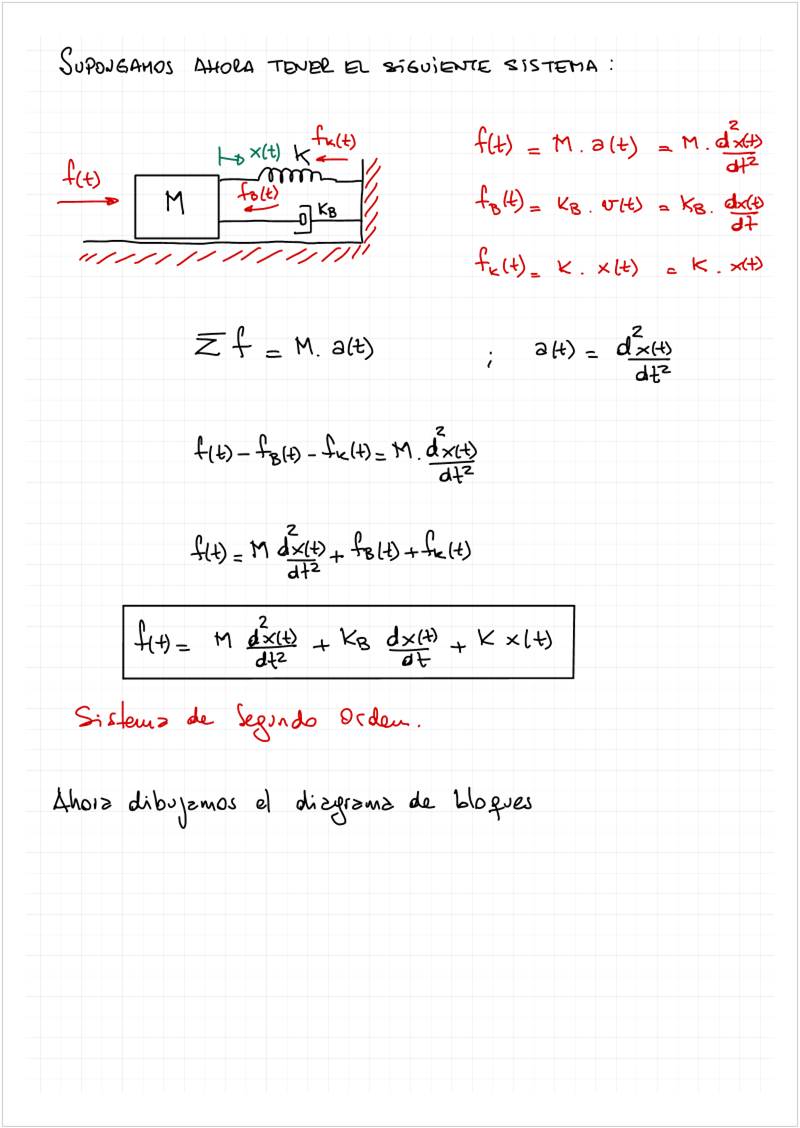 SUPONGAMOS AHORA TENER EL SIGUIENTE SISTEMA:
f(t)
M
x(t)
K
fk(t)
fB(t)
KB
f(t) = M . a(t) = M . d²x(t)/dt²
fB(t) = KB . v(t) = KB . dx(t)/dt
fk(t) = K . x(t) = K . x(t)
Σ f = M . a(t) ; a(t) = d²x(t)/dt²
f(t) - fB(t) - fk(t) = M . d²x(t)/dt²
f(t) = M d²x(t)/dt² + fB(t) + fk(t)
f(t) = M d²x(t)/dt² + KB dx(t)/dt + K x(t)
Sistema de Segundo Orden.
Ahora dibujamos el diagrama de bloques